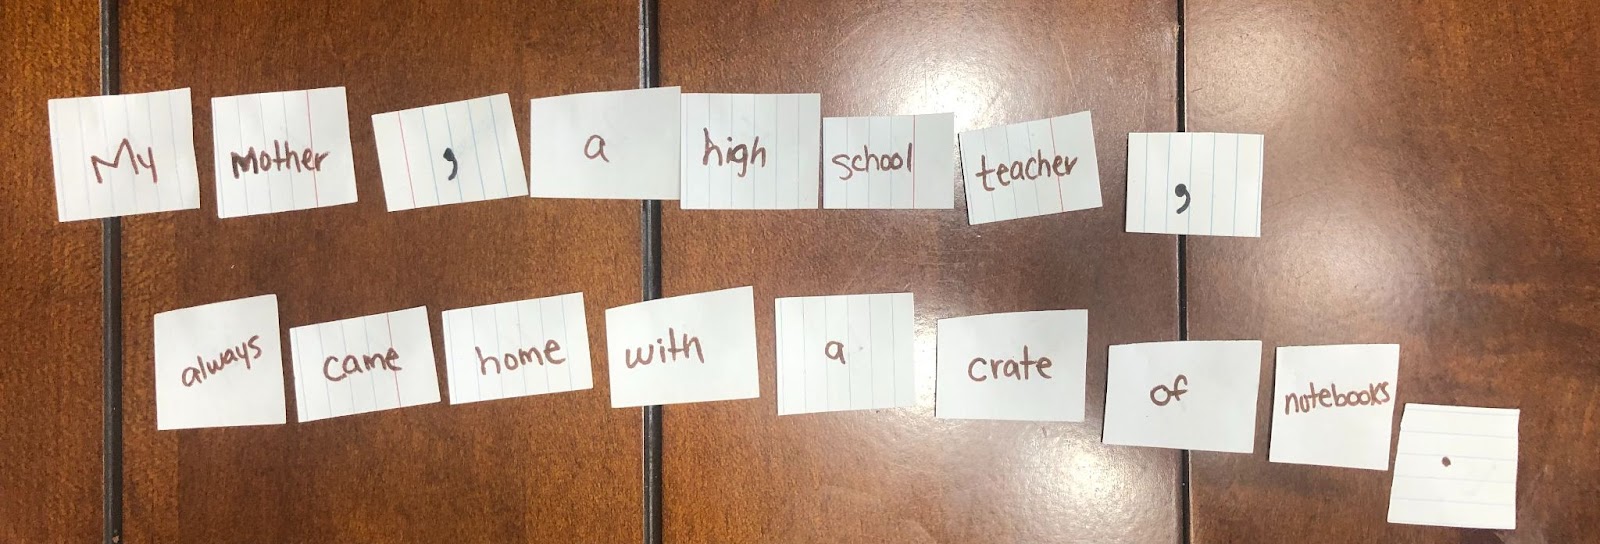 My mother , a high school teacher ,
always came home with a crate of notebooks .